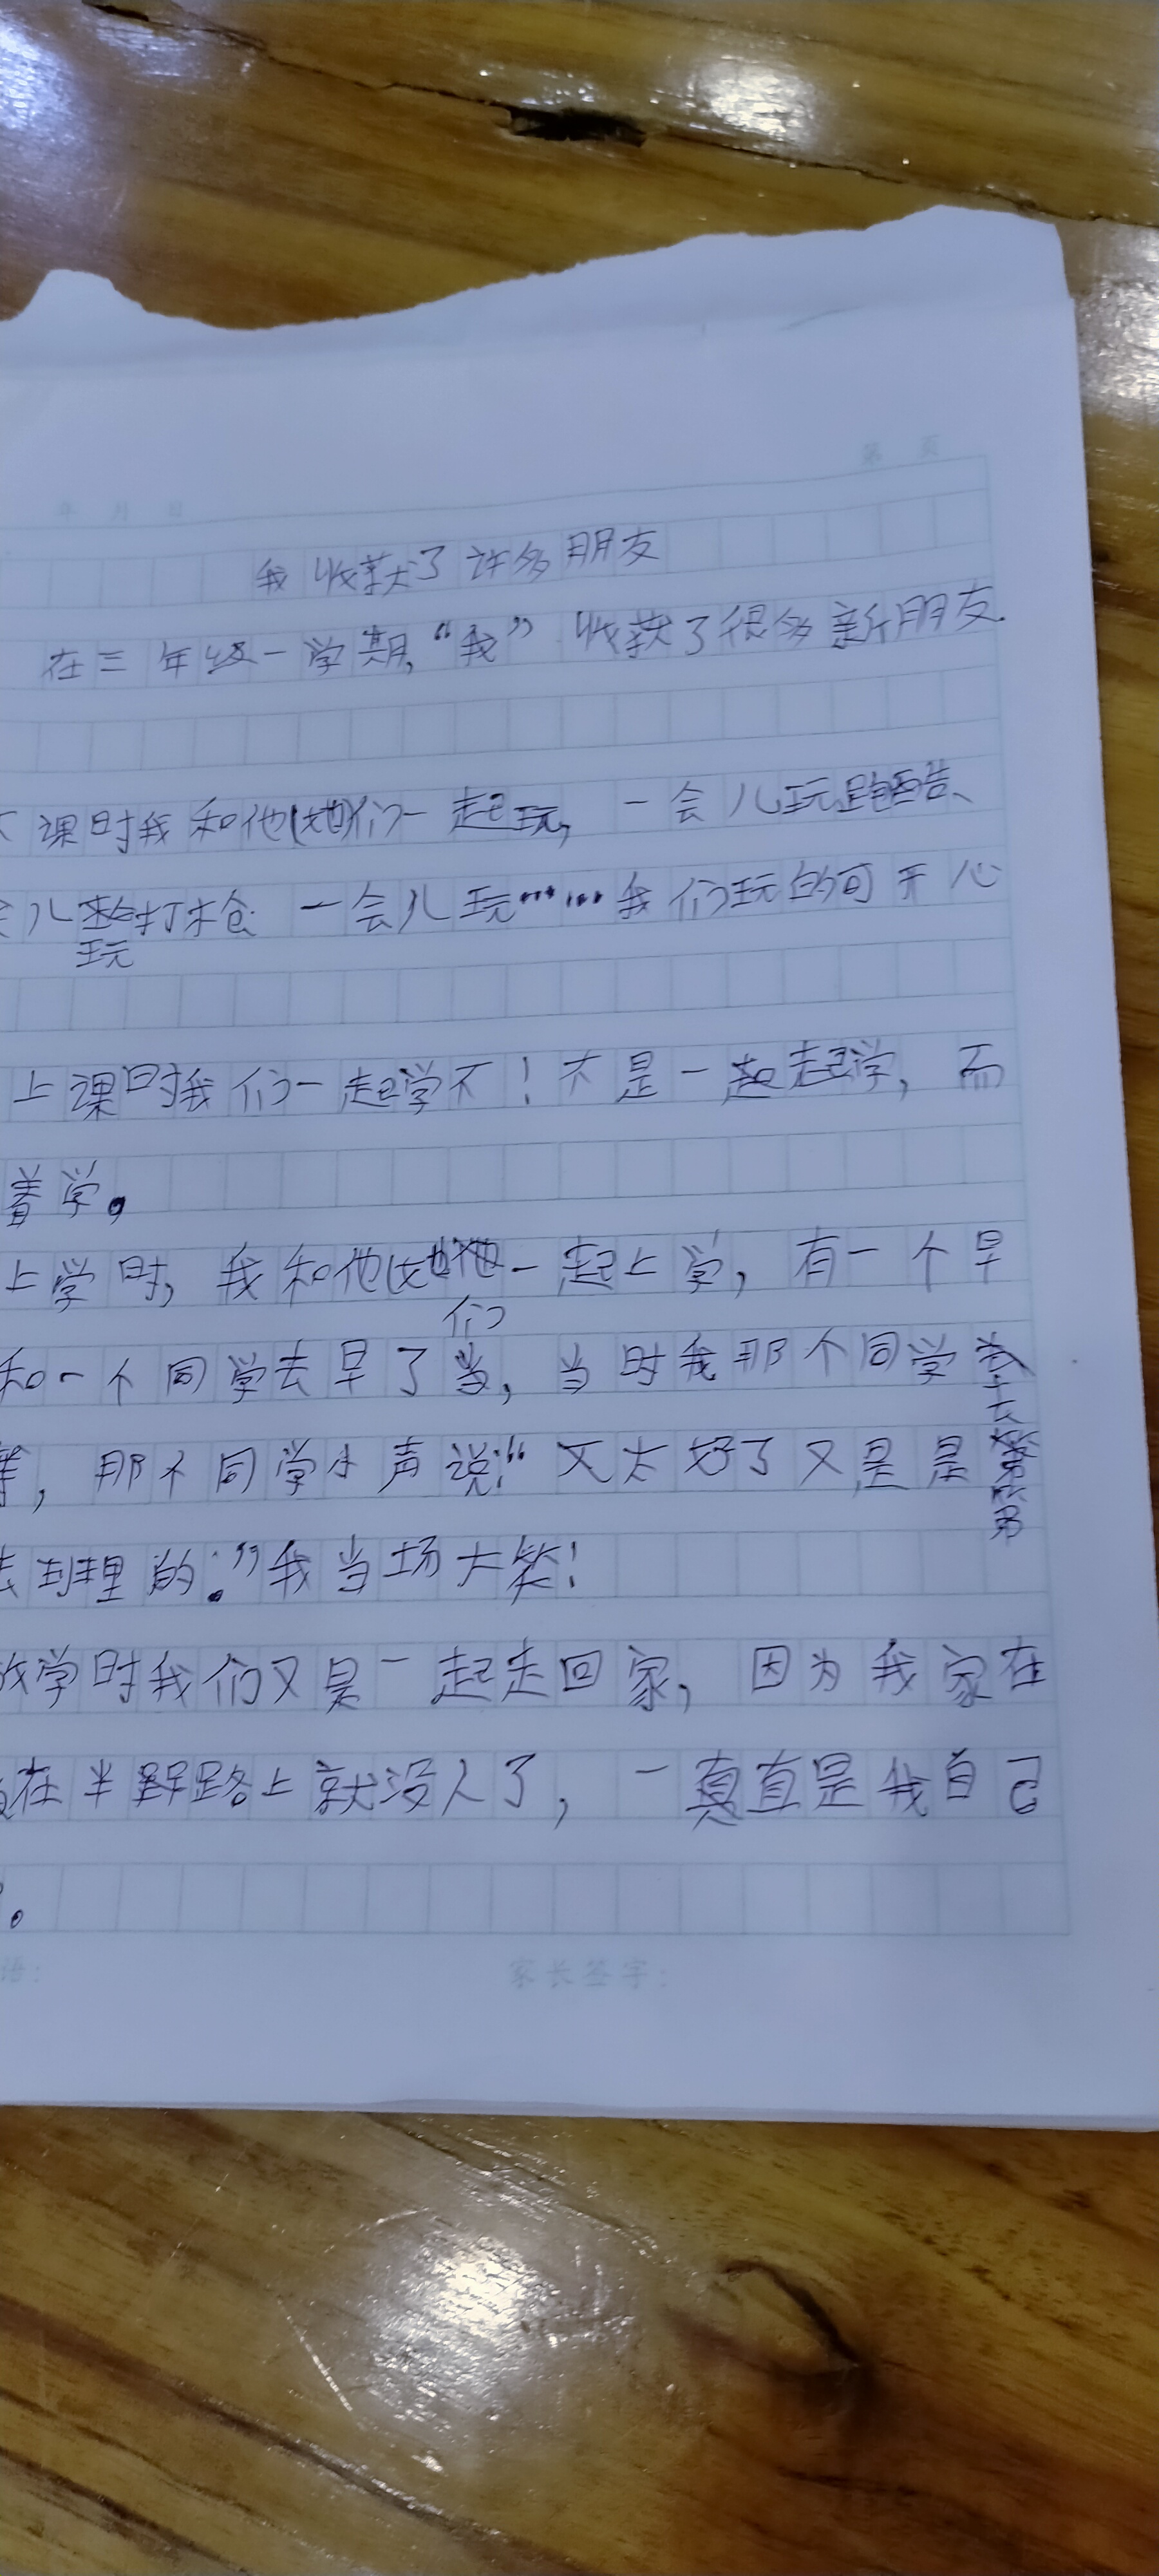 第 页
年 月 日
我收获了许多朋友
在三年级一学期,“我”收获了很多新朋友.
课时我和他(她)们一起玩,一会儿玩跑酷、
儿玩打枪 一会儿玩……我们玩的可开心
上课时我们一起学不!不是一起起学,而
着学。
上学时,我和他(她他们一起上学,有一个早
和一个同学去早了当,当时我那个同学
,那个同学小声说:“又太好了又是是第
班里的.”我当场大笑!
放学时我们又是一起走回家,因为我家在
在半路上就没人了,一真直是我自己
。
语:
家长签字: